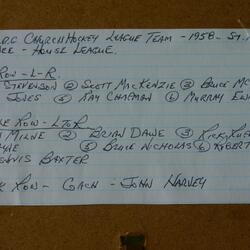 CHURCH HOCKEY LEAGUE TEAM - 1958 - ST.
- HOUSE LEAGUE.
ROW - L-R.
STEVENSON ② SCOTT MACKENZIE ③ BRUCE MC
JONES ⑤ RAY CHAPMAN ⑥ MURRAY
ROW - L TO R
MILNE ② BRIAN DAWE ③
⑤ BRUCE NICHOLAS ⑥ ROBERT
BAXTER
ROW - COACH - JOHN HARVEY